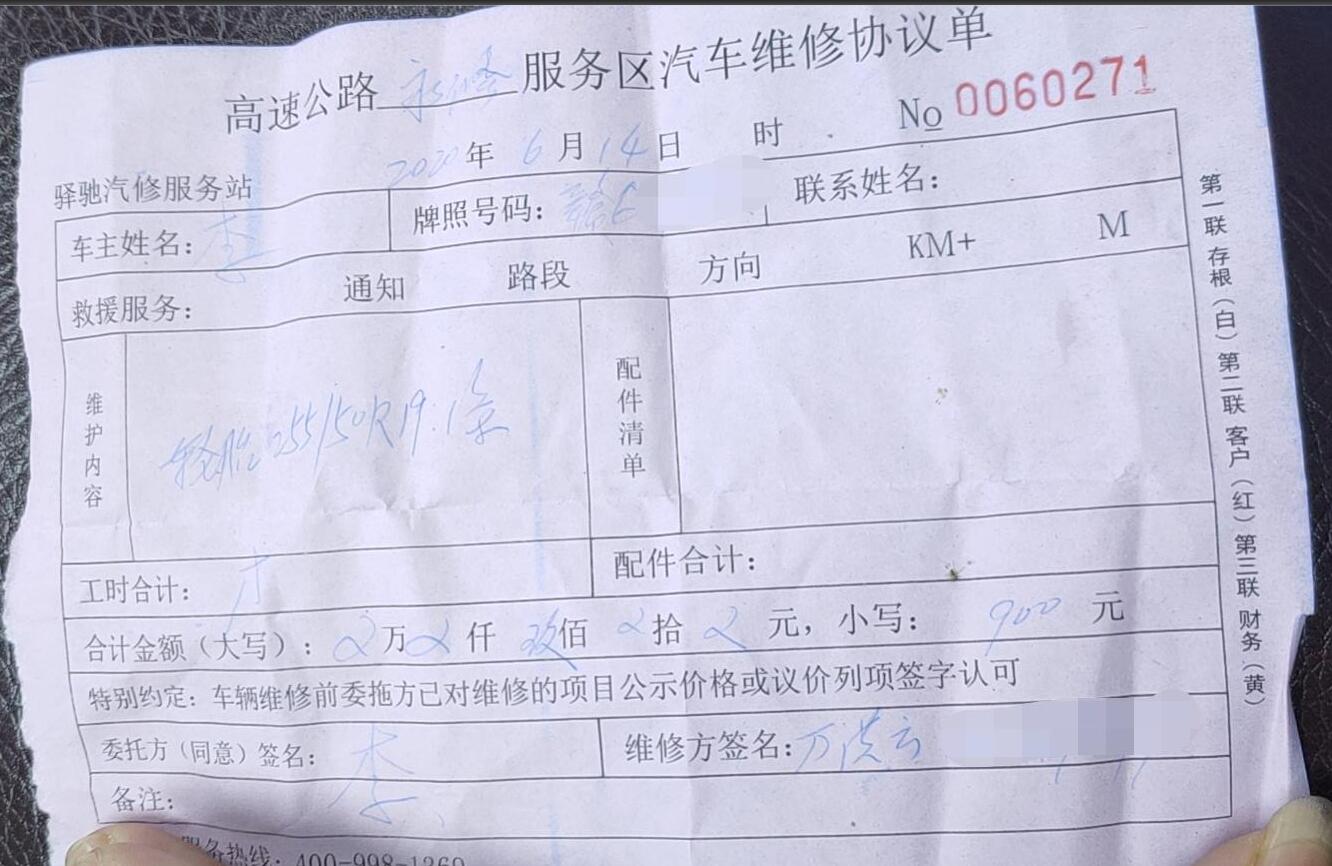 高速公路 永修 服务区汽车维修协议单
No 0060271
2020年 6月14日 时
驿驰汽修服务站
车主姓名：李 牌照号码：赣G 联系姓名：
救援服务： 通知 路段 方向 KM+ M
维护内容 轮胎255/50R19.1条 配件清单
工时合计： 配件合计：
合计金额（大写）：万 仟 玖佰 拾 元，小写：900元
特别约定：车辆维修前委拖方已对维修的项目公示价格或议价列项签字认可
委托方（同意）签名：李 维修方签名：万洪云
备注：
服务热线：400-998-1369
第一联 存根（白）第二联 客户（红）第三联 财务（黄）